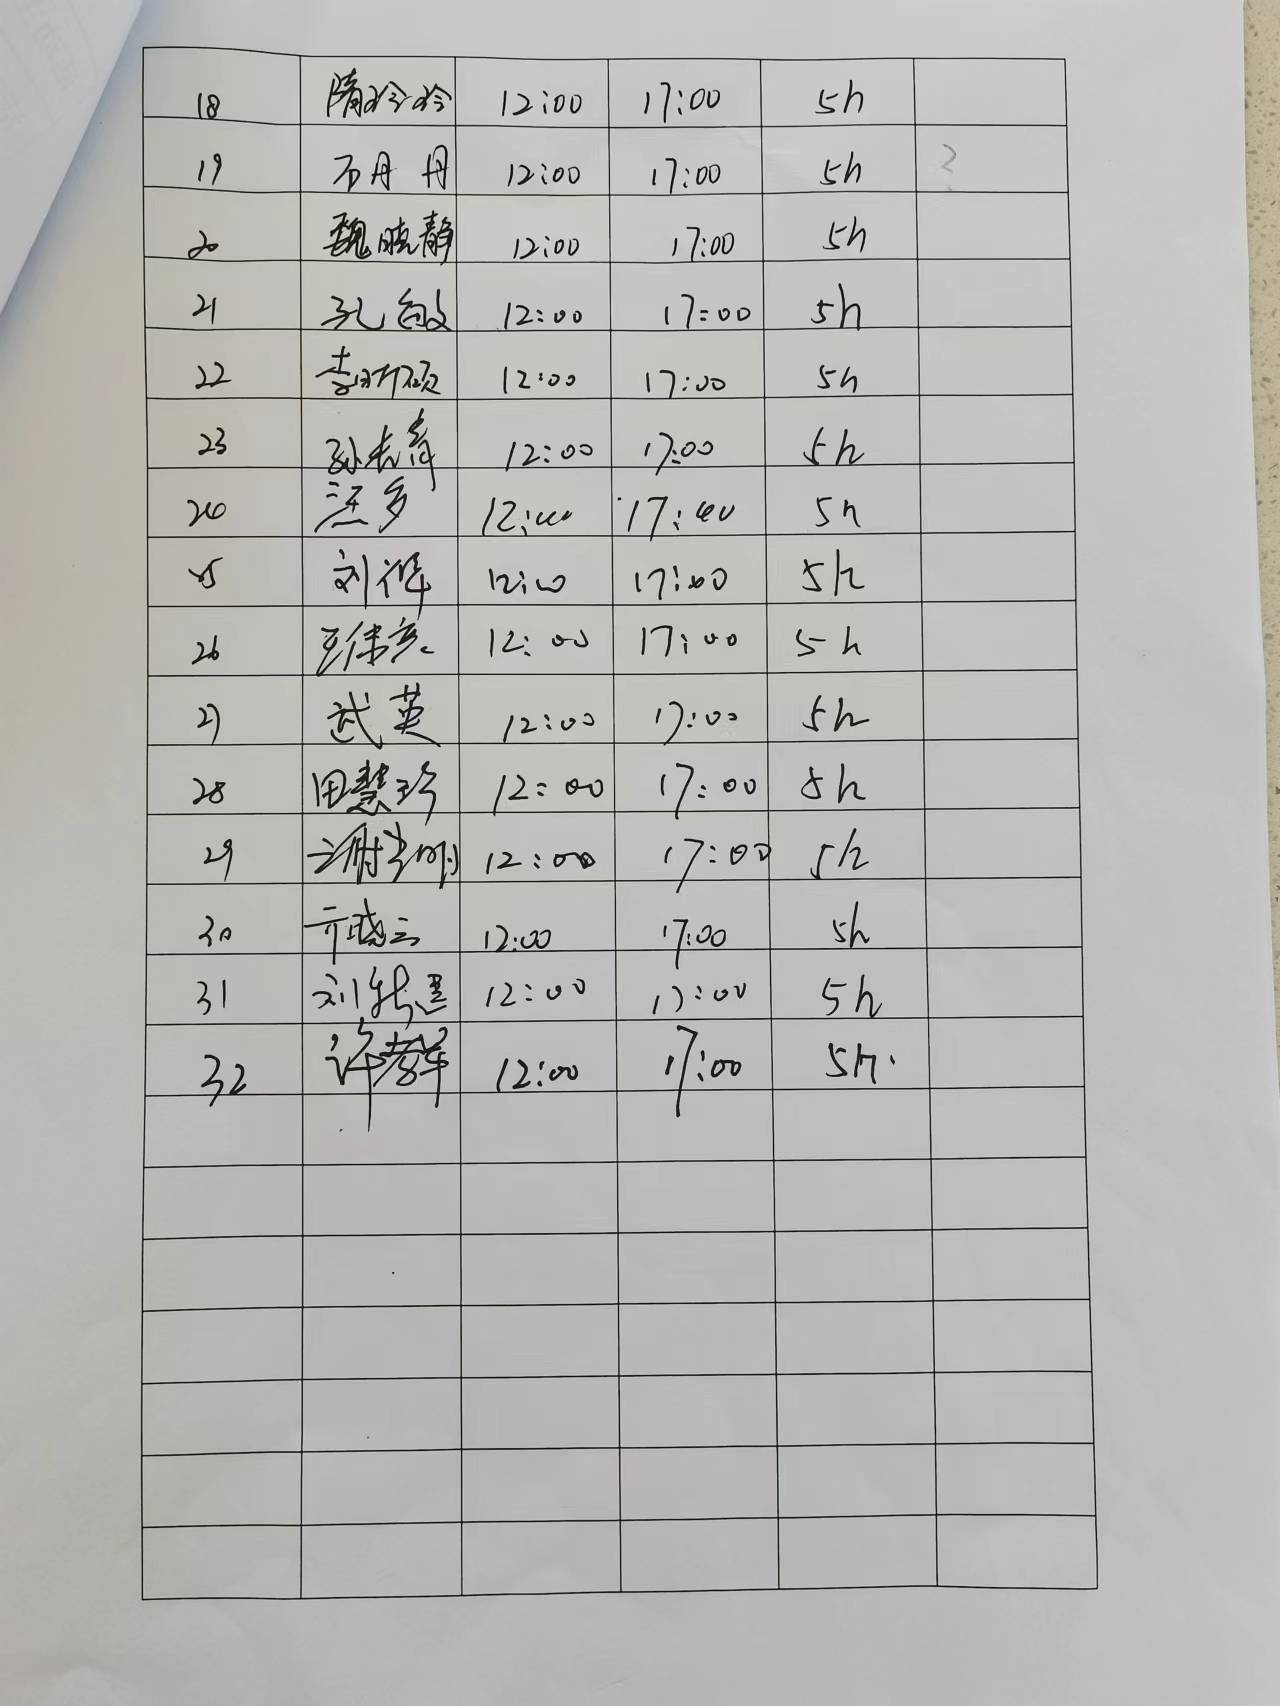 18 隋玲玲 12:00 17:00 5h
19 石丹丹 12:00 17:00 5h 2
20 魏晓静 12:00 17:00 5h
21 孔敏 12:00 17:00 5h
22 李 12:00 17:00 5h
23 孙志青 12:00 17:00 5h
24 汪多 12:00 17:00 5h
25 刘祥 12:00 17:00 5h
26 王 12:00 17:00 5h
27 武英 12:00 17:00 5h
28 田慧珍 12:00 17:00 5h
29 谢 明 12:00 17:00 5h
30 亓晓云 12:00 17:00 5h
31 刘 12:00 17:00 5h
32 许 12:00 17:00 5h.